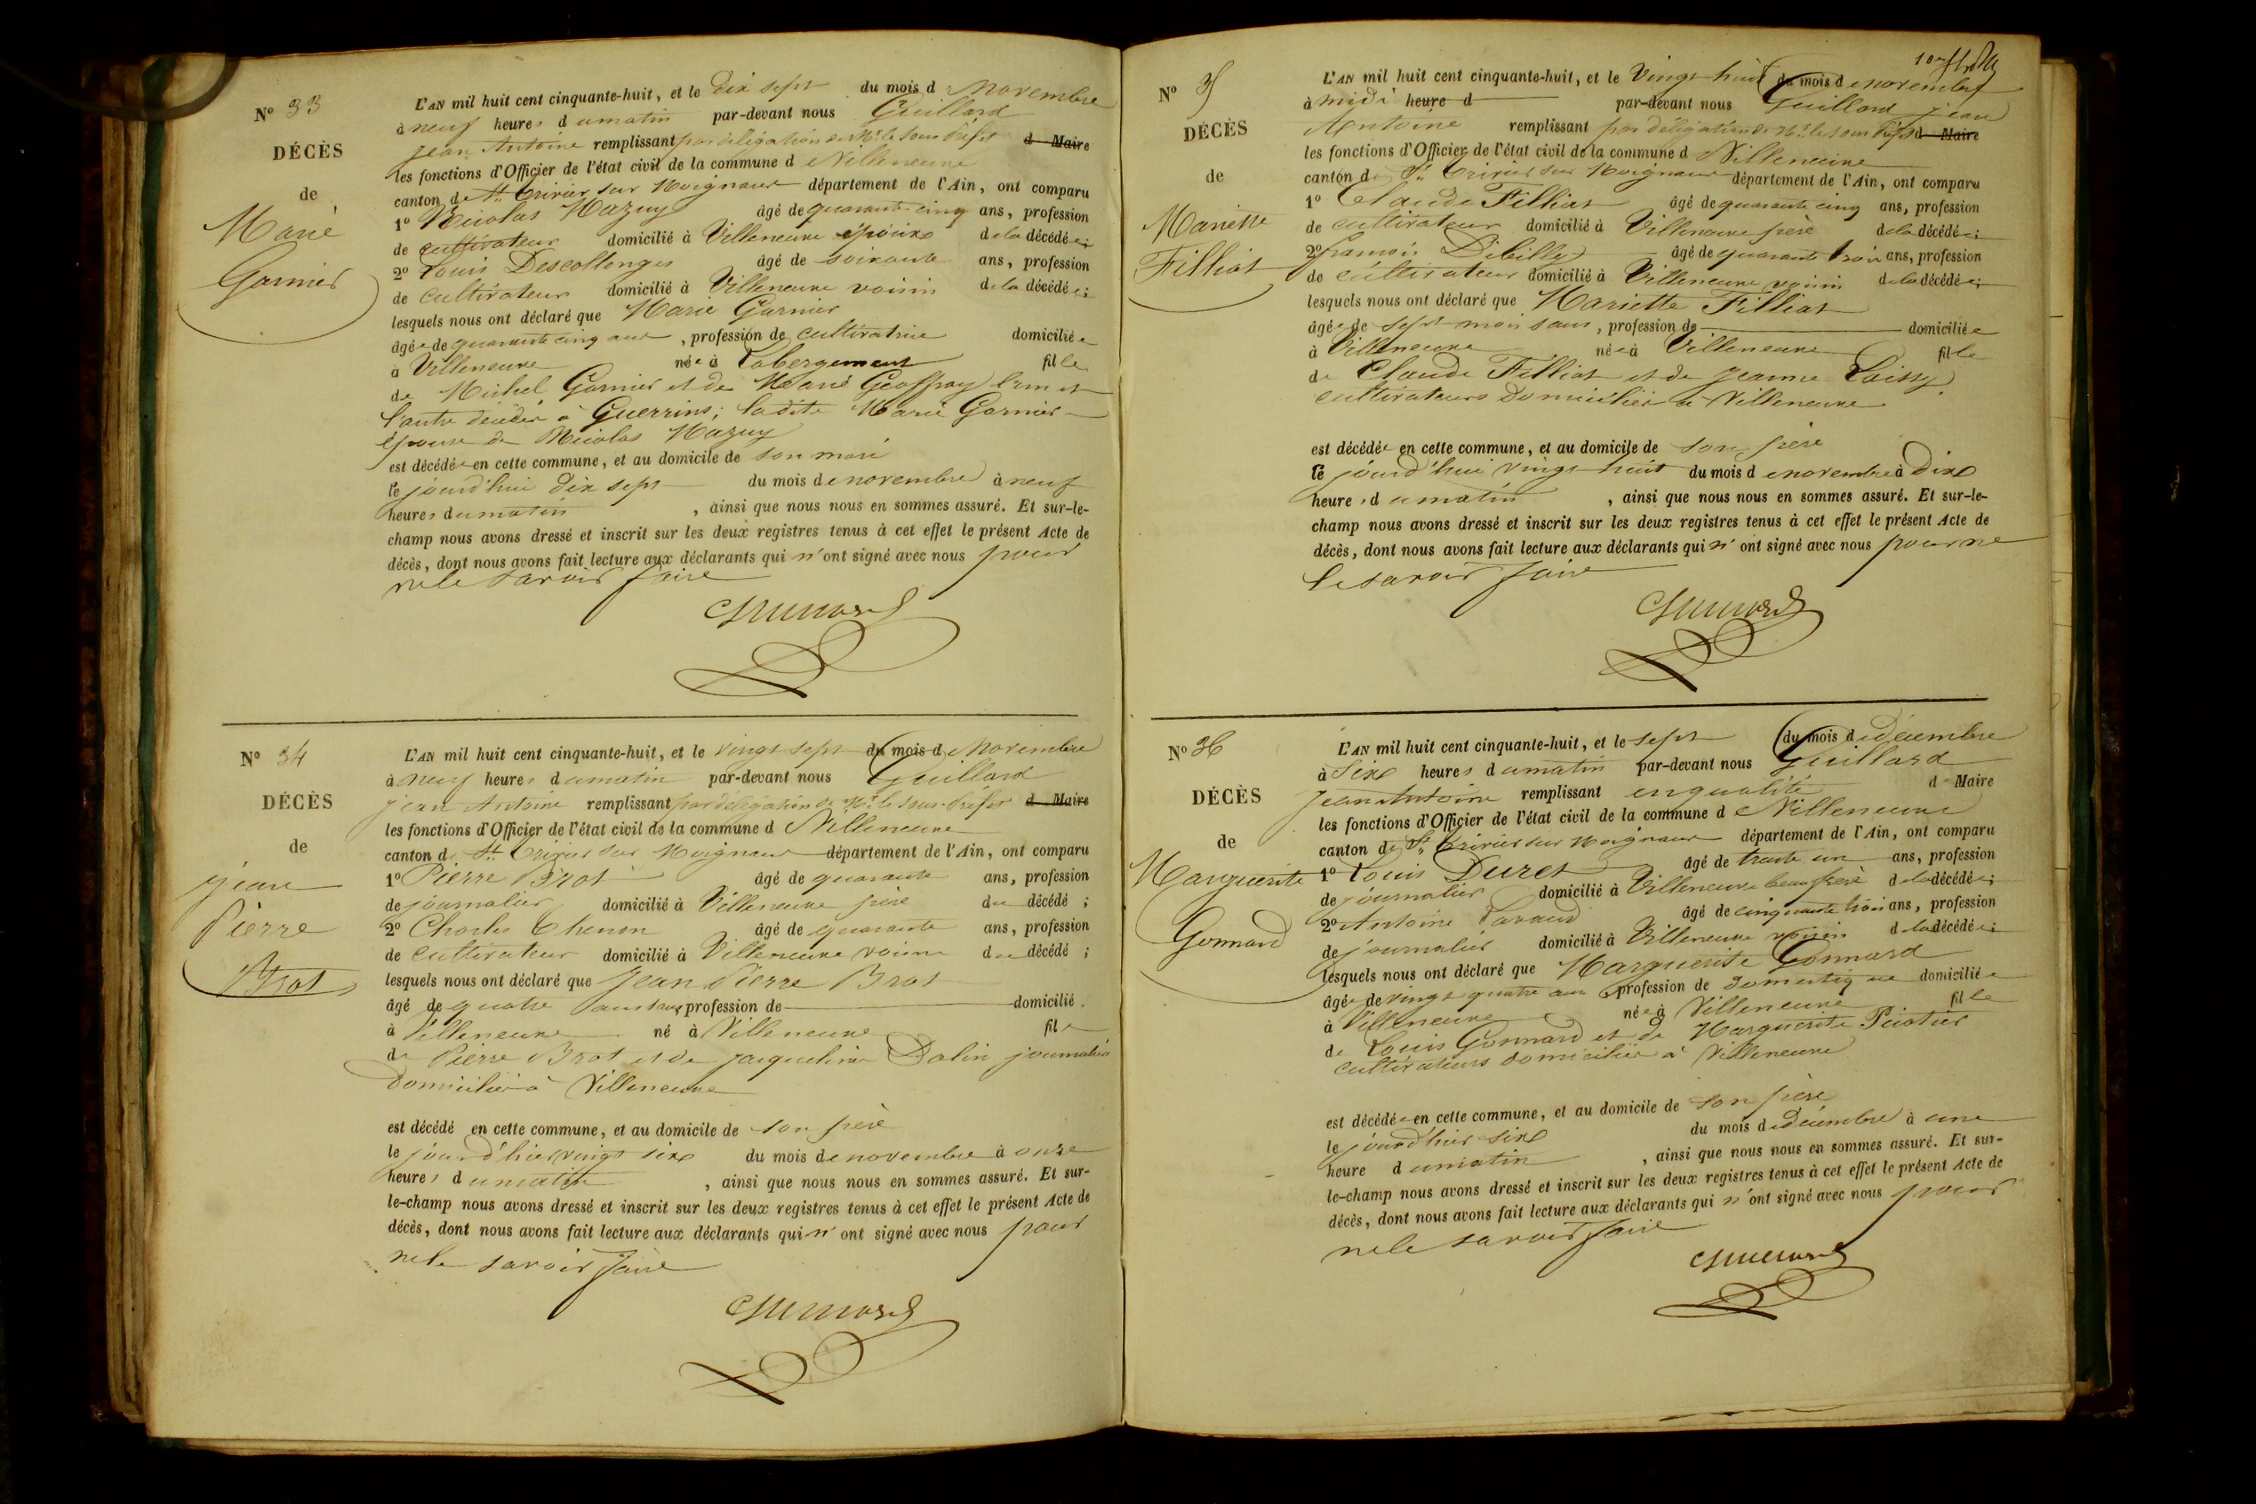 N° 33
DÉCÈS
de
Marie
Garnier
L'AN mil huit cent cinquante-huit, et le dix sept du mois d Novembre
à neuf heures du matin par-devant nous Guillard
Jean Antoine remplissant par délégation de Mr le Sous Préfet d Maire
les fonctions d'Officier de l'état civil de la commune de Villeneuve
canton de St Trivier sur Moignans département de l'Ain, ont comparu
1° Nicolas Mazuy âgé de quarante cinq ans, profession
de cultivateur domicilié à Villeneuve époux de la décédée;
2° Louis Descollonges âgé de soixante ans, profession
de cultivateur domicilié à Villeneuve voisin de la décédée;
lesquels nous ont déclaré que Marie Garnier
âgée de quarante cinq ans, profession de cultivatrice domiciliée
à Villeneuve née à Labergement fille
de Michel Garnier et de Marie Geoffray l'un et
l'autre décédés à Guerrins; ladite Marie Garnier
épouse de Nicolas Mazuy
est décédée en cette commune, et au domicile de son mari
le jourd'hui dix sept du mois de novembre à neuf
heures du matin, ainsi que nous nous en sommes assuré. Et sur-le-
champ nous avons dressé et inscrit sur les deux registres tenus à cet effet le présent Acte de
décès, dont nous avons fait lecture aux déclarants qui n'ont signé avec nous pour
ne le savoir faire
Guillard
N° 34
DÉCÈS
de
Jean
Pierre
Brot
L'AN mil huit cent cinquante-huit, et le vingt sept du mois d Novembre
à neuf heures du matin par-devant nous Guillard
jean Antoine remplissant par délégation de Mr le Sous-Préfet d Maire
les fonctions d'Officier de l'état civil de la commune de Villeneuve
canton de St Trivier sur Moignans département de l'Ain, ont comparu
1° Pierre Brot âgé de quarante ans, profession
de journalier domicilié à Villeneuve père du décédé;
2° Charles Thenon âgé de quarante ans, profession
de cultivateur domicilié à Villeneuve voisin du décédé;
lesquels nous ont déclaré que Jean Pierre Brot
âgé de quatre profession de domicilié
à Villeneuve né à Villeneuve fils
de Pierre Brot et de Jacqueline Dalin journaliers
domiciliés à Villeneuve
est décédé en cette commune, et au domicile de son père
le jourd'hier vingt six du mois de novembre à onze
heures du matin, ainsi que nous nous en sommes assuré. Et sur-
le-champ nous avons dressé et inscrit sur les deux registres tenus à cet effet le présent Acte de
décès, dont nous avons fait lecture aux déclarants qui n'ont signé avec nous pour
ne le savoir faire
Guillard
N° 35
DÉCÈS
de
Mariette
Filliat
L'AN mil huit cent cinquante-huit, et le vingt huit du mois de novembre
à midi heure d par-devant nous Guillard jean
Antoine remplissant par délégation de Mr le Sous Préfet d Maire
les fonctions d'Officier de l'état civil de la commune de Villeneuve
canton de St Trivier sur Moignans département de l'Ain, ont comparu
1° Claude Filliat âgé de quarante cinq ans, profession
de cultivateur domicilié à Villeneuve père de la décédée;
2° françois Débilly âgé de quarante trois ans, profession
de cultivateur domicilié à Villeneuve voisin de la décédée;
lesquels nous ont déclaré que Mariette Filliat
âgée de sept mois sans, profession de domiciliée
à Villeneuve née à Villeneuve fille
de Claude Filliat et de Jeanne Loissy
cultivateurs domiciliés à Villeneuve
est décédée en cette commune, et au domicile de son père
le jourd'hui vingt huit du mois de novembre à dix
heures du matin, ainsi que nous nous en sommes assuré. Et sur-le-
champ nous avons dressé et inscrit sur les deux registres tenus à cet effet le présent Acte de
décès, dont nous avons fait lecture aux déclarants qui n'ont signé avec nous pour ne
le savoir faire
Guillard
N° 36
DÉCÈS
de
Marguerite
Gonnard
L'AN mil huit cent cinquante-huit, et le sept du mois de décembre
à six heures du matin par-devant nous Guillard
Jean Antoine remplissant en qualité de Maire
les fonctions d'Officier de l'état civil de la commune de Villeneuve
canton de St Trivier sur Moignans département de l'Ain, ont comparu
1° Louis Duret âgé de trente un ans, profession
de journalier domicilié à Villeneuve beau frère de la décédée;
2° Antoine Lavaud âgé de cinquante trois ans, profession
de journalier domicilié à Villeneuve voisin de la décédée;
lesquels nous ont déclaré que Marguerite Gonnard
âgée de vingt quatre ans profession de domestique domiciliée
à Villeneuve née à Villeneuve fille
de Louis Gonnard et de Marguerite
cultivateurs domiciliés à Villeneuve
est décédée en cette commune, et au domicile de son père
le jourd'hier six du mois de décembre à une
heure du matin, ainsi que nous nous en sommes assuré. Et sur-
le-champ nous avons dressé et inscrit sur les deux registres tenus à cet effet le présent Acte de
décès, dont nous avons fait lecture aux déclarants qui n'ont signé avec nous pour
ne le savoir faire
Guillard